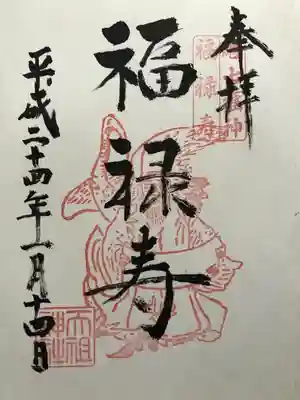 奉拝
福禄寿
福禄寿
平成二十四年一月十四日